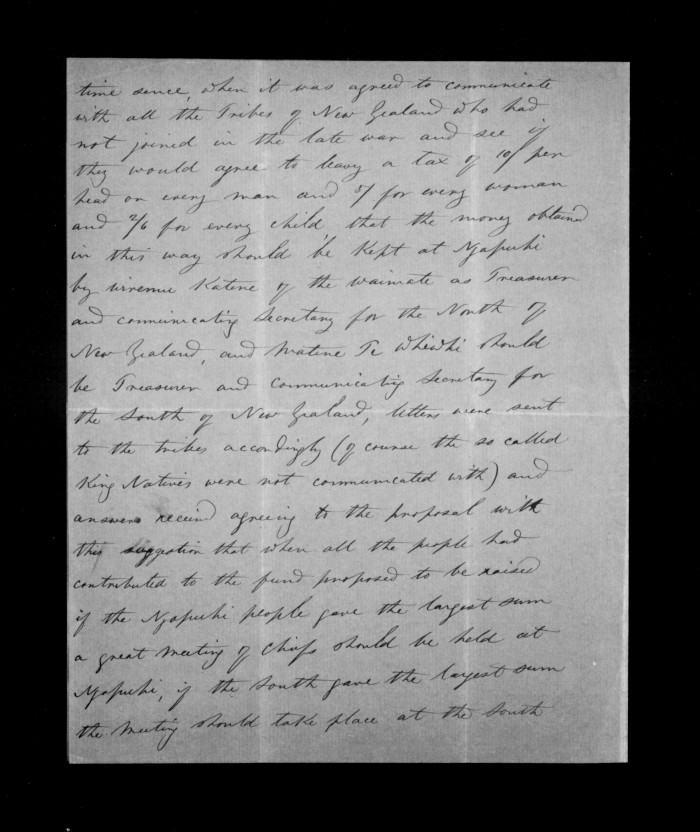 time sence, when it was agreed to communicate
with all the Tribes of New Zealand who had
not joined in the late war and see if
they would agree to leavy a tax of 10/ per
head on every man and 5/ for every woman
and 2/6 for every child, that the money obtained
in this way should be Kept at Ngapuhi
by Wiremu Katene of the Waimate as Treasurer
and communicating Secretary for the North of
New Zealand, and Matene Te Whiwhi should
be Treasurer and communicating Secretary for
the South of New Zealand, letters were sent
to the tribes accordingly (of course the so called
King Natives were not communicated with) and
answers received agreeing to the proposal with
this suggestion that when all the people had
contributed to the fund proposed to be raised
if the Ngapuhi people gave the largest sum
a great meeting of Chiefs should be held at
Ngapuhi, if the South gave the largest sum
the meeting should take place at the South